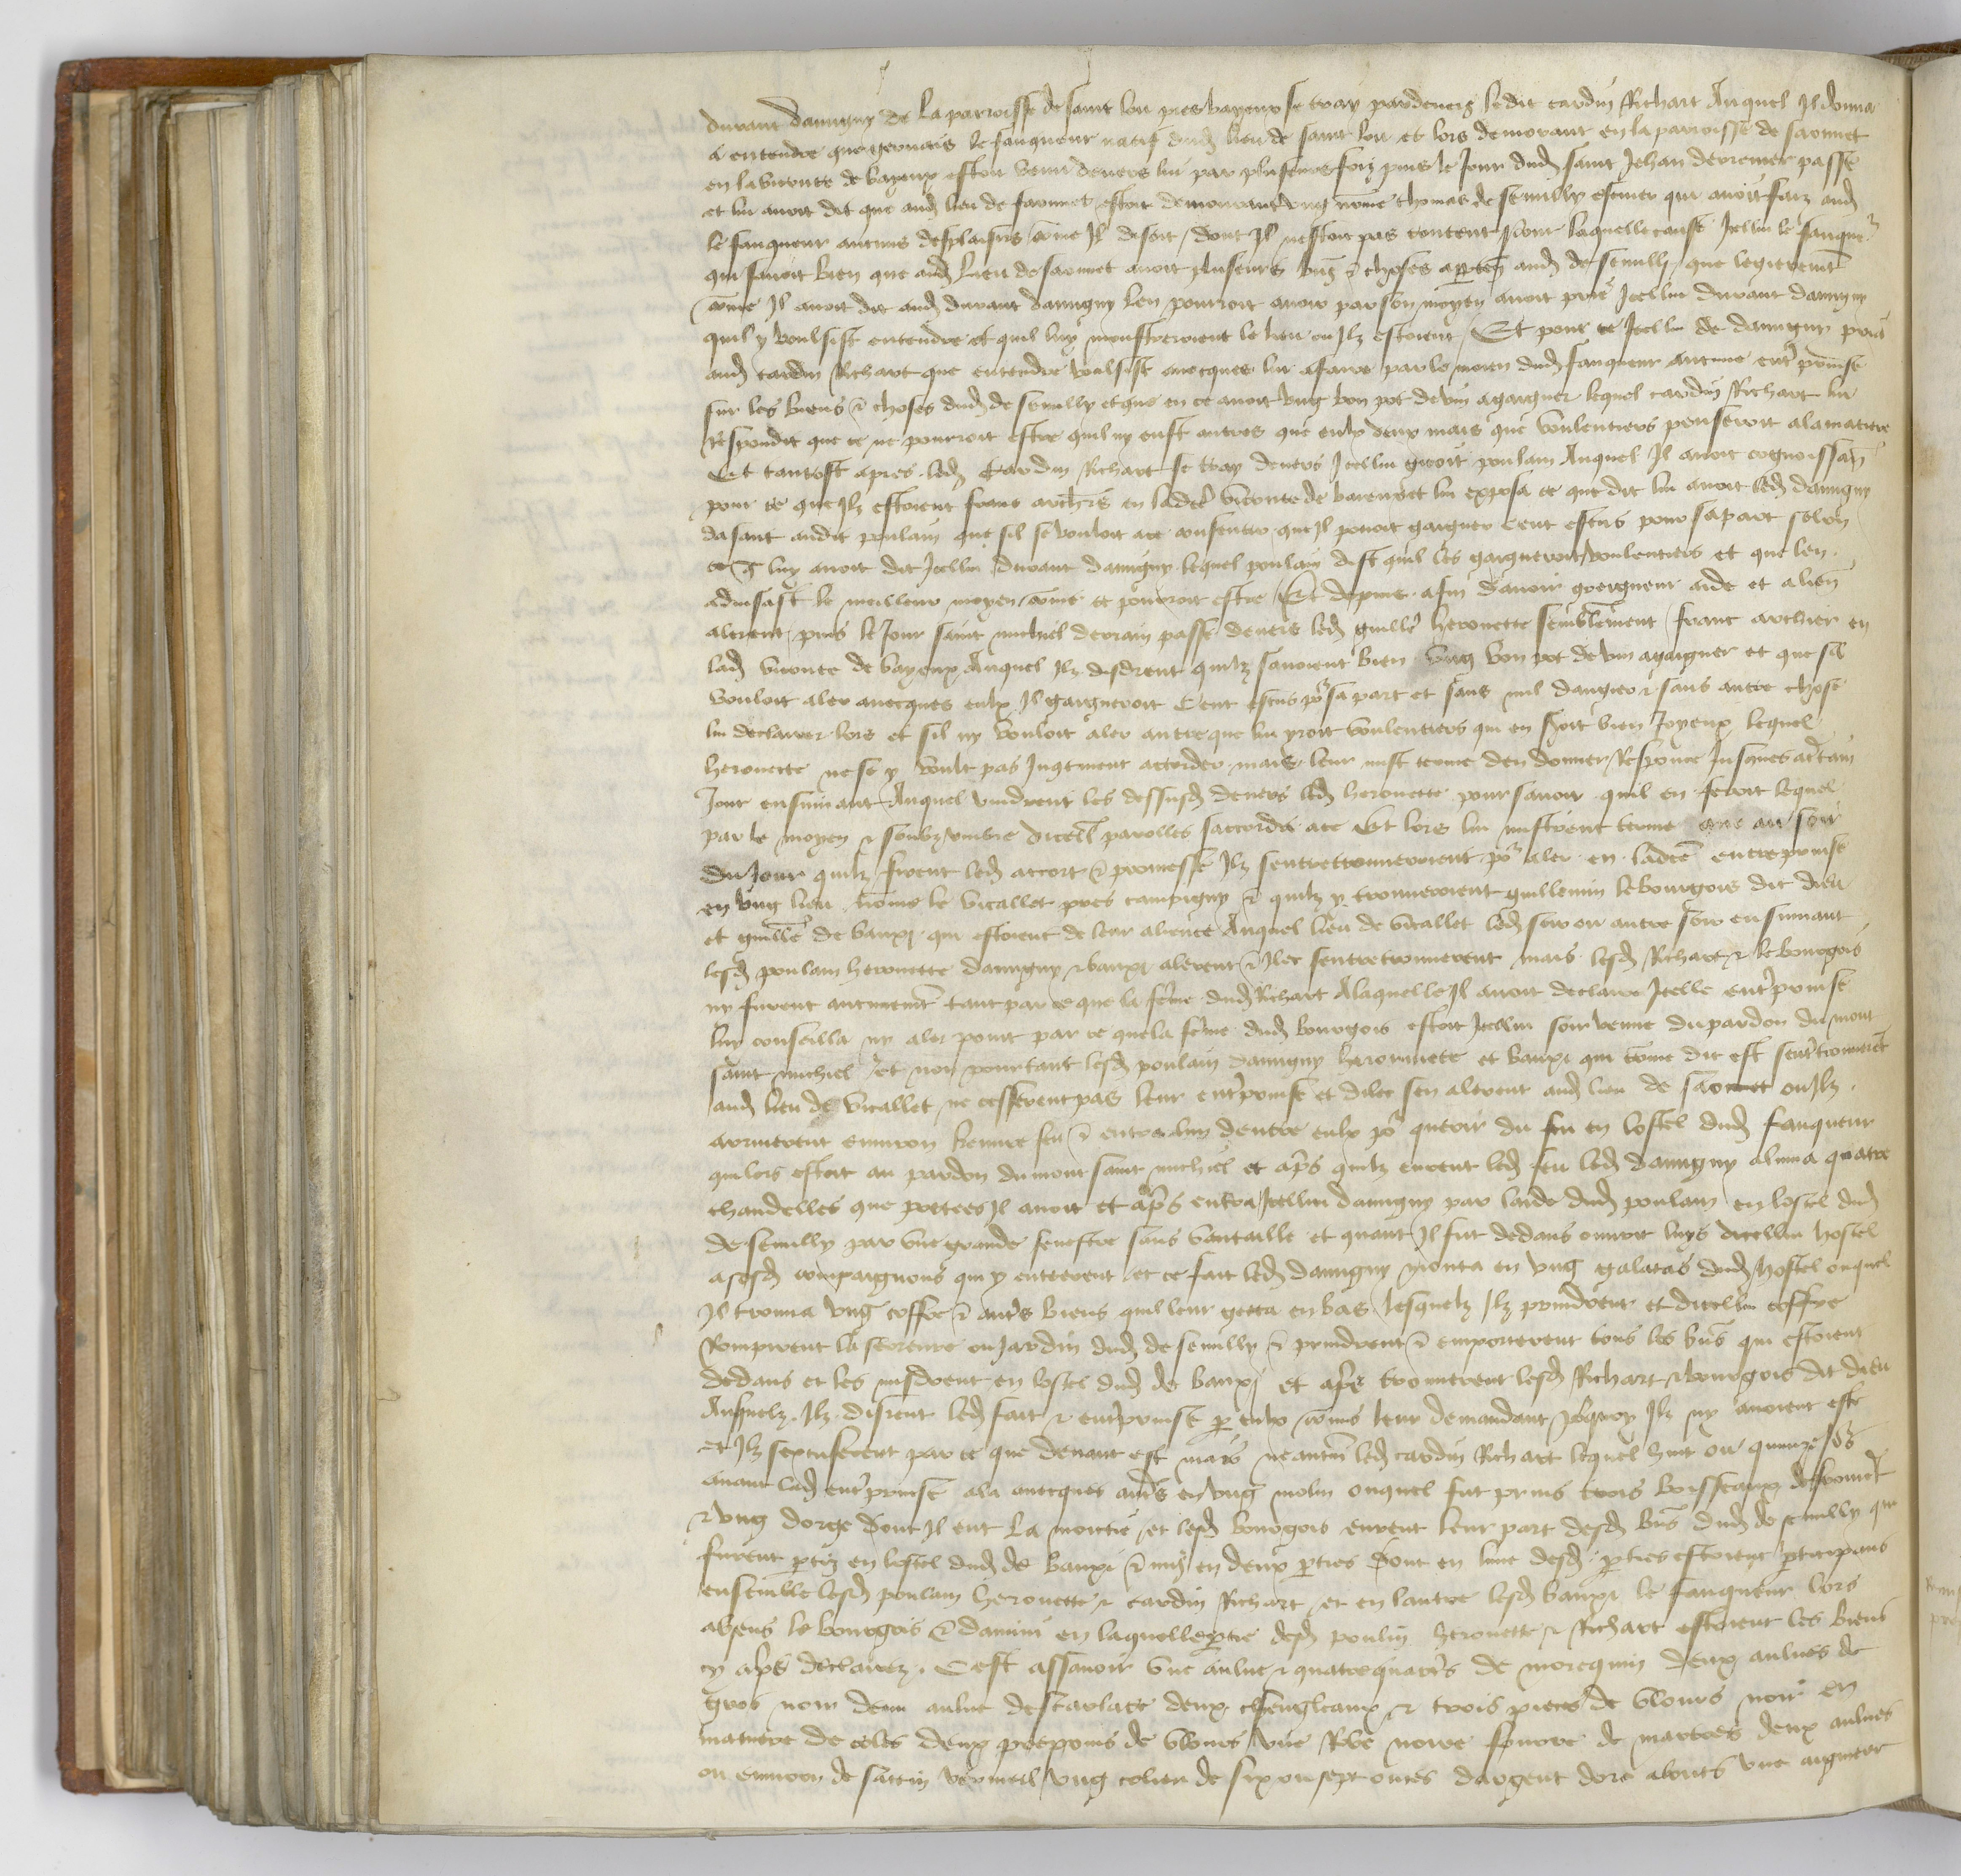 durant damigny de la parroisse de saint lou pres bayeux se tray pardevers ledit cardin Richart Auquel Il donna
a entendre que gervais le fauqueur natif dud lieu de saint lou et lors demorant en la parroisse de saonnet
en la viconte de bayeux estoit venu devers lui par pluseurs foiz puis le Jour dud saint Jehan derrenier passe
et lui avoit dit que aud lieu de saonnet estoit demourant ung nomme thomas de semilly escuier qui avoit faiz aud
le fauqueur aucuns desplaisirs come Il disoit dont Il nestoit pas content pour laquelle cause Icellui le fauqueur
qui savoit bien que aud lieu de saonnet avoit pluseurs biens et choses aparten aud de semilly que legierement
come Il avoit dit aud durant damigny len pourroit avoir par son moyen avoit prie Icellui durant damigny
quil y voulsist entendre et quil luy monstreroient le lieu ou Ilz estoient Et pour ce Icellui de damigny pria
aud cardin Richart que entendre voulsist avecques lui afaire par le moien dud fauqueur aucune entreprinse
sur les biens et choses dud de semilly et que en ce avoit ung bon pot de vin agaigner lequel cardin Richart lui
Respondit que ce ne pourroit estre quil ny eust autres que eulx deux mais que voulentiers penseroit alamatiere
Et tantost apres led Cardin Richart se tray devers Icellui poulain Auquel Il avoit cognoissance
pour ce que Ilz estoient franc archiers en ladite viconte de bayeux et lui exposa ce que dit lui avoit led damigny
disant audit poulain que sil se vouloit ace consentir que Il pouoit gaigner cent escus pour sapart selon
ce que luy avoit dit Icellui durant damigny lequel poulain dist quil les gaigneroit voulentiers et que len
advisast le meilleur moyen come ce pourroit estre Et depuis afin davoir greigneur aide et aliance
alerent puis le Jour saint michiel derrain passe devers led guillaume heronnette semblement franc archier en
lad viconte de bayeux Auquel Ilz disdrent quilz savoient bien ung bon pot de vin agaigner et que sil
vouloit aler avecques eulx Il gaigneroit Cent escus pour sa part et sans nul dangier et sans autre chose
lui declairer lors et sil ny vouloit aler autre que lui yroit voulentiers qui en seroit bien Joyeux lequel
heronnette ne se y voult pas Ingement accorder mais leur mist terme den donner Response Jusques acertain
Jour ensuivant Auquel vindrent les dessusd devers led heronnette pour savoir quil en feroit lequel
par le moyen et soubz umbre dicelles parolles saccorda ace Et lors lui mistrent terme que au soir
du Jour quilz firent led accort et promesse Ilz sentretrouveroient pour aler en ladite entreprinse
en ung lieu nomme le vicallet pres campigny et quilz y trouveroient guillemin lebourgois dit dieu
et guillaume de bauxi qui estoient de leur aliance Auquel lieu de vicallet led soir ou autre soir ensuivant
lesd poulain heronnette damigny et bauxi alerent et Ilec sentretrouverent mais lesd Richart et lebourgois
ny furent aucunement tant par ce que la feme dud Richart Alaquelle Il avoit declaire Icelle entreprinse
luy conseilla ny aler point par ce que la feme dud bourgois estoit Icellui soir venue du pardon du mont
saint michiel et non pourtant lesd poulain damigny heronnette et bauxi qui come dit est sentretrouverent
aud lieu de vicallet ne cesserent pas leur entreprinse et dilec sen alerent aud lieu de saonnet ou Ilz
arriverent environ et entra lun dentre eulx pour querir du feu en lostel dud fauqueur
qui lors estoit au pardon du mont saint michiel et apres quilz eurent led feu led damigny aluma quatre
chandelles que portees Il avoit et apres entra Icellui damigny par laide dud poulain en lostel dud
de semilly par une grande fenestre sans ventaille et quant Il fut dedans ouvrit luys dicellui hostel
asesd compaignons qui y entrerent et ce fait led damigny monta en ung galatas dud hostel ouquel
Il trouva ung coffre et autres biens quil leur getta en bas lesquelz Ilz prindrent et dicellui coffre
Rompirent la serreure ou Jardin dud de semilly et prindrent et emporterent tous les biens qui estoient
dedans et les misdrent en lostel dud de bauxi et apres trouverent lesd Richart et bourgois dit dieu
Ausquelz Ilz disrent led fait et entreprinse par eulx comis leur demandant pourquoy Ilz ny avoient este
et Ilz sexcuserent par ce que devant est mais neantmoins led cardin Richart lequel huit ou quinze Jours
avant lad entreprinse ala avecques autres en ung molin ouquel fut prins trois boisseaux de froment
et ung dorge dont Il eut la moictie et lesd bourgois eurent leur part desd biens dud de semilly qui
furent partiz en lostel dud de bauxi et mis en deux parties dont en lune desd parties estoient participans
ensemble lesd poulain heronnette et cardin Richart et en lautre lesd bauxi le fauqueur lors
absens le bourgois et damini en laquelle partie desd poulin heronnette et Richart estoient les biens
cy apres declairez Cest assavoir une aulne et quatre quartiers de morequin deux aulnes de
gros noir demi aulne descarlate deux et trois pieces de velours noir en
matiere de coles deux porpoins de velours une Robe noire fourree de martres deux aulnes
ou environ de sattin vermeil ung colier de six ou sept onces dargent dore abouts une